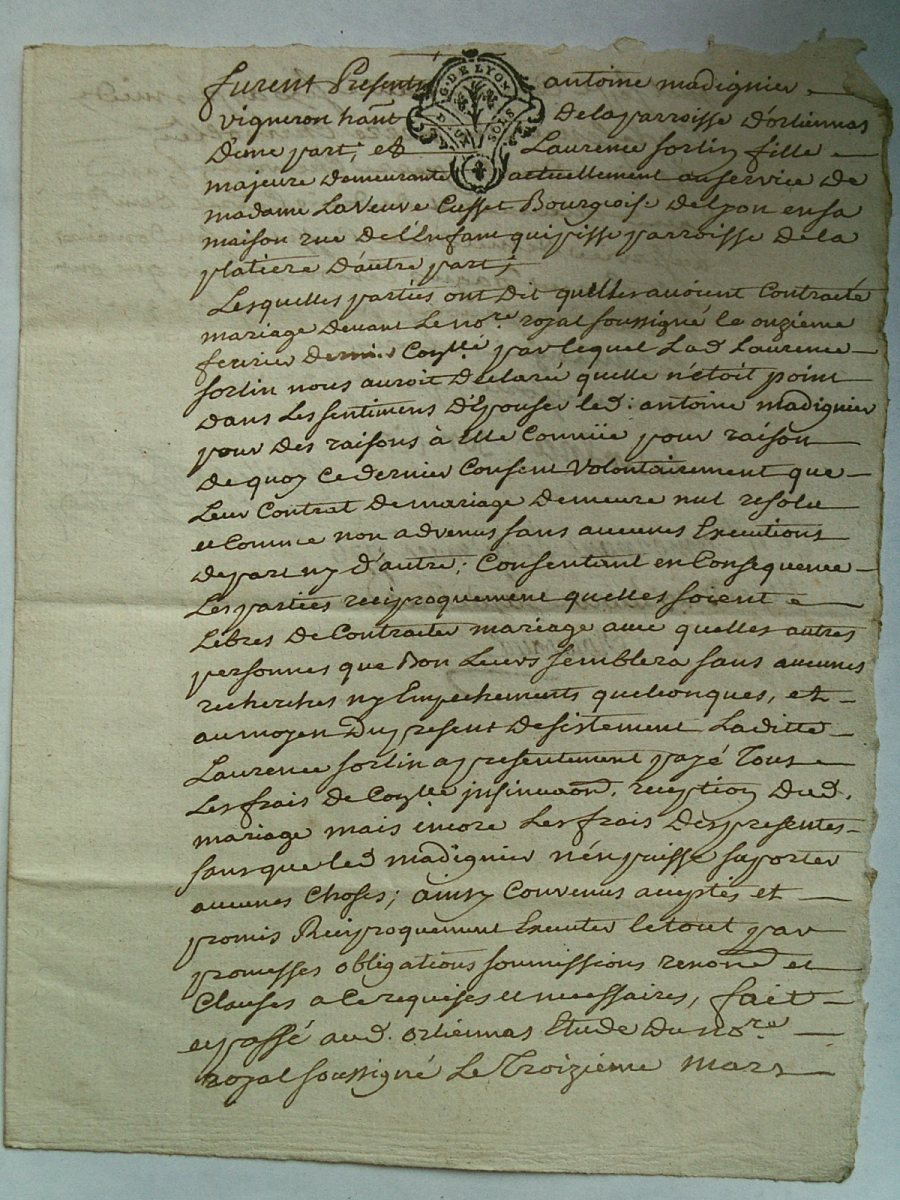 furent Presents antoine madignier
G. DE LYON
D. SIX SOLS
vigneron hañt de la parroisse d'orliennas
d'une part, et Laurence fortin fille
majeure demeurante actuellement au service de
madame La Veuve Cusset Bourgoise de lyon en sa
maison rue de l'Enfant qui pisse parroisse de la
platiere d'autre part;
Lesquelles parties ont dit quelles avoient Contracté
mariage devant Le nore. royal soussigné le onzieme
fevrier dernier par lequel Lad Laurence
fortin nous auroit déclaré quelle n'étoit point
dans Les sentimens d'Epouser led: antoine madignier
pour des raisons à Elle Connüe pour raison
de quoy Ce dernier Consent Volontairement que
Leur Contrat de mariage demeure nul resolu
et Comme non advenus sans aucunes Executions
de part ny d'autre; Consentant en Consequence
Les parties reciproquement quelles soient
Libres de Contracter mariage avec quelles autres
personnes que Bon Leurs semblera sans aucunes
recherches ny Empechements quelconques, et
au moyen du present desistement Laditte
Laurence fortin a presentement payé Tous
Les frais de insinuaon. reception dud.
mariage mais encore Les frais des presentes
sans que led madignier n'en puisse suporter
aucunes Choses; ainsy Convenus acceptés et
promis Reciproquement Executer le tout par
promesses obligations soumissions renond et
Clauses a Ce requises et necessaires, fait
et passé aud. orliennas Etude du nore
royal soussigné Le Troizieme mars